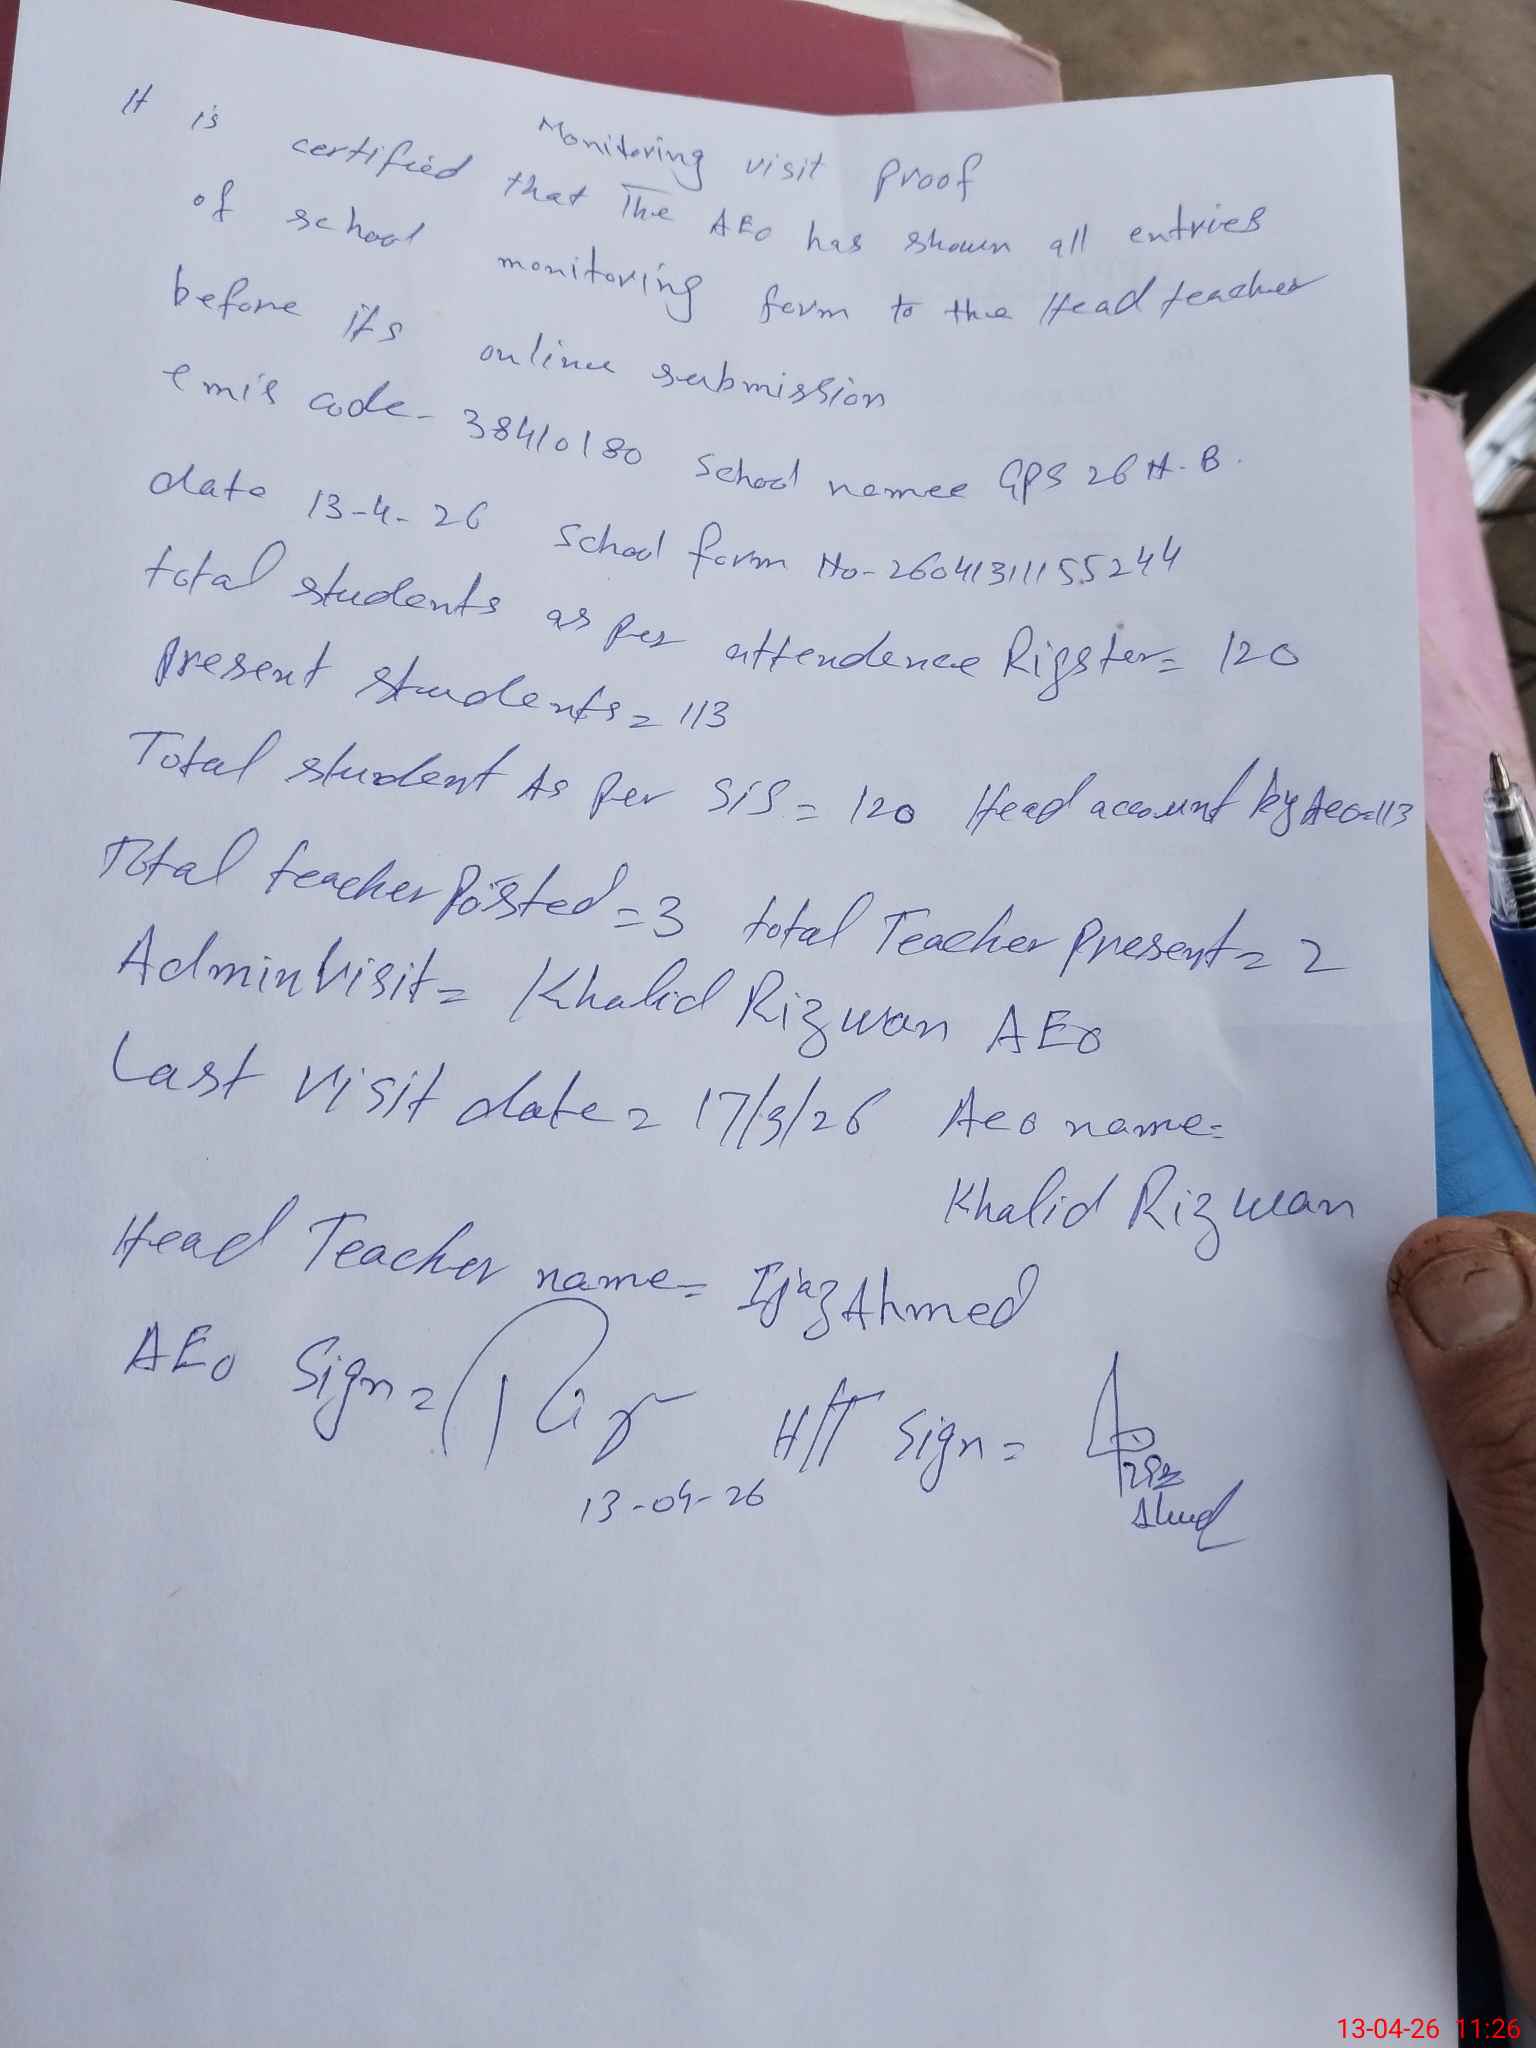 Monitoring visit proof
It is certified that The AEO has shown all entries
of school monitoring form to the Head teacher
before its online submission
emis code - 38410180 School namee GPS 26 H.B.
date 13-4-26 School form No- 26041311155244
total students as per attendence Rigster = 120
present students = 113
Total student As per SiS = 120 Head account by Aeo=113
Total teacher Poisted = 3 total Teacher present = 2
Admin Visit = Khalid Rizwan AEO
Last visit date = 17/3/26 Aeo name =
Khalid Rizwan
Head Teacher name = Ijaz Ahmed
AEO Sign =
13-04-26
H/T Sign =
13-04-26 11:26